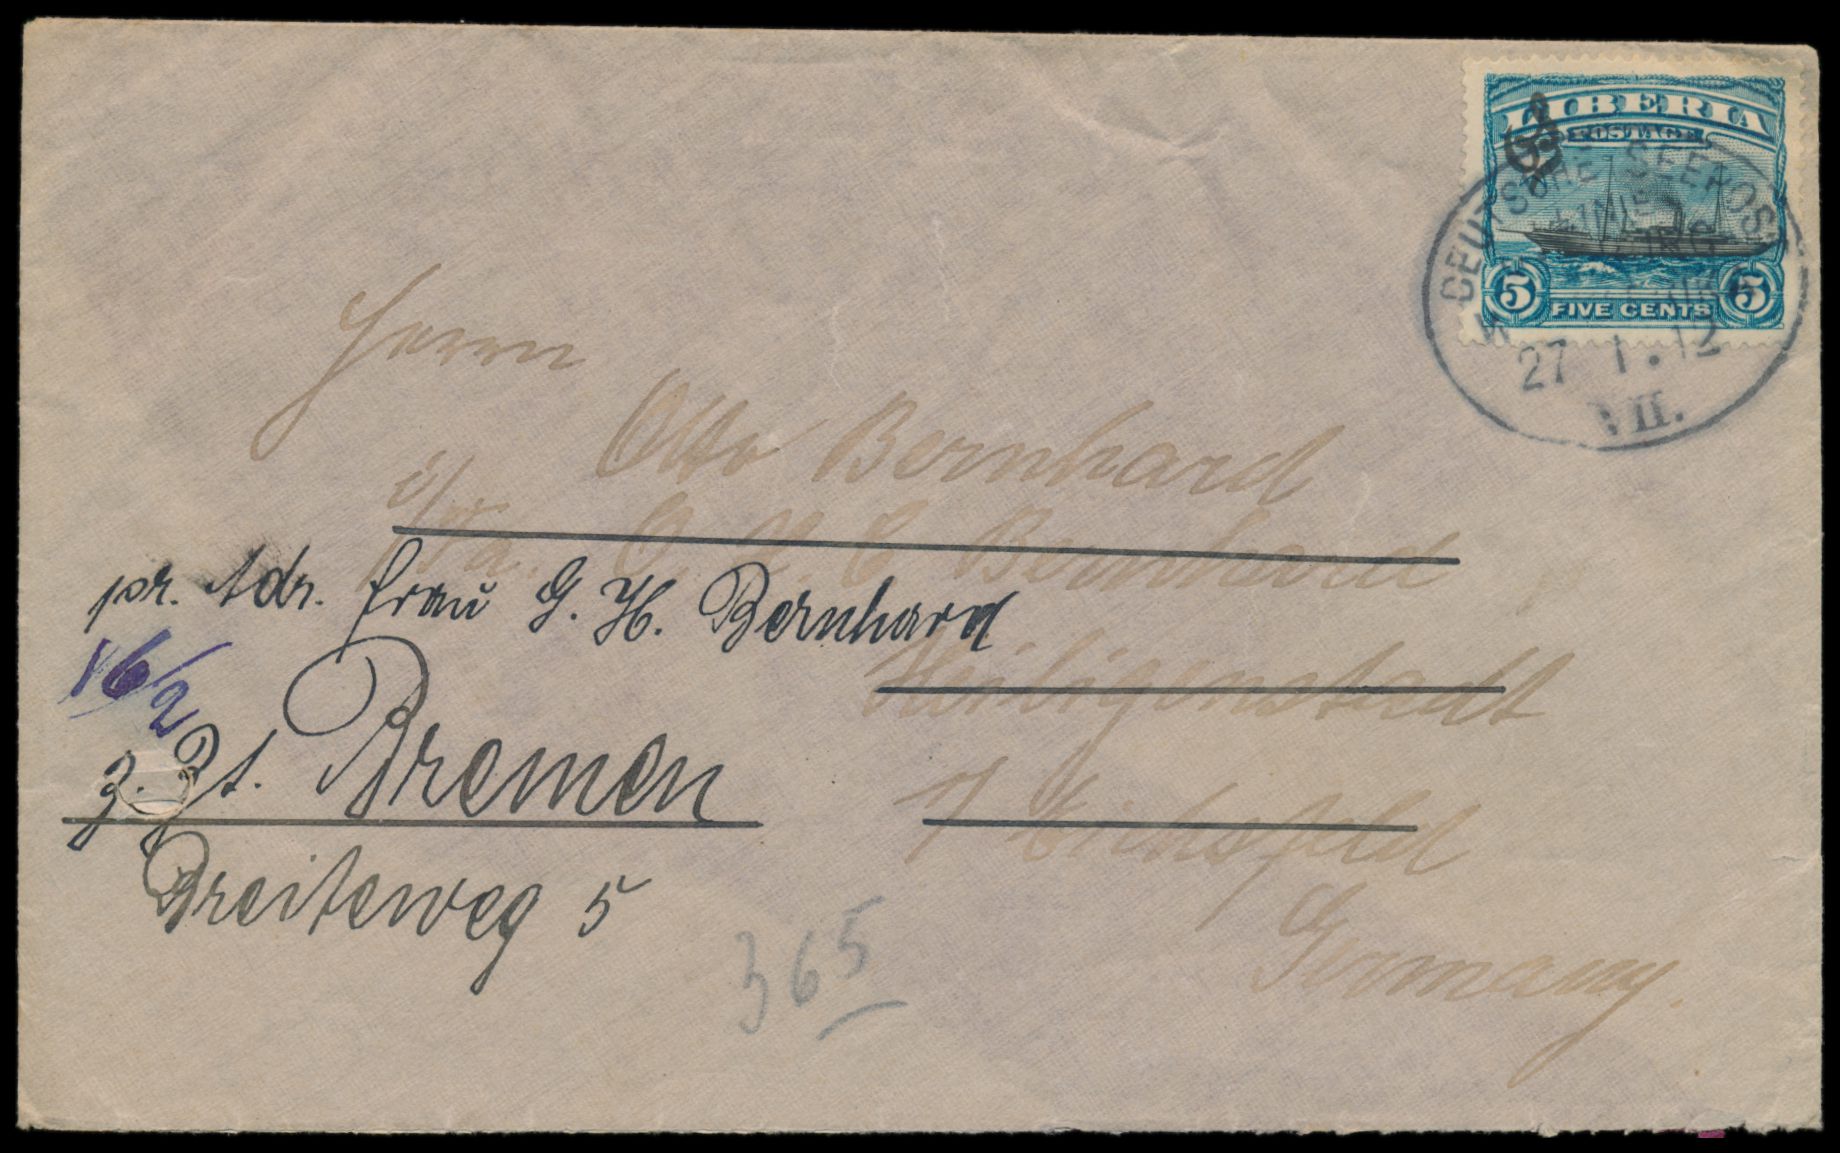 LIBERIA
POSTAGE
5 FIVE CENTS 5
DEUTSCHE SEEPOST
LINIE
HAMBURG
WESTAFRIKA
27 1.12
VII.
Herrn
Otto Bernhard
i/Fa. C. H. C Bernhard
Heiligenstadt
/ Eichsfeld
Germany.
pr. Adr. Frau G. H. Bernhard
16/2
z. Zt. Bremen
Breiteweg 5
365